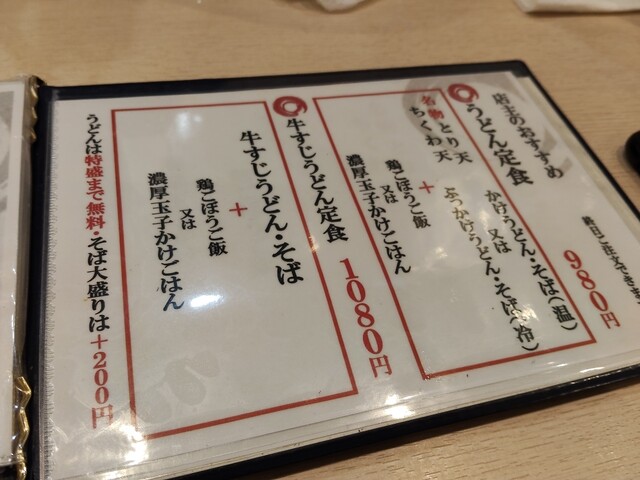 店主のおすすめ
うどん定食
980円
終日ご注文できます
かけうどん・そば(温)
又は
ぶっかけうどん・そば(冷)
名物とり天
ちくわ天
+
鶏ごぼうご飯
又は
濃厚玉子かけごはん
牛すじうどん定食
1080円
牛すじうどん・そば
+
鶏ごぼうご飯
又は
濃厚玉子かけごはん
うどんは特盛まで無料・そば大盛りは+200円